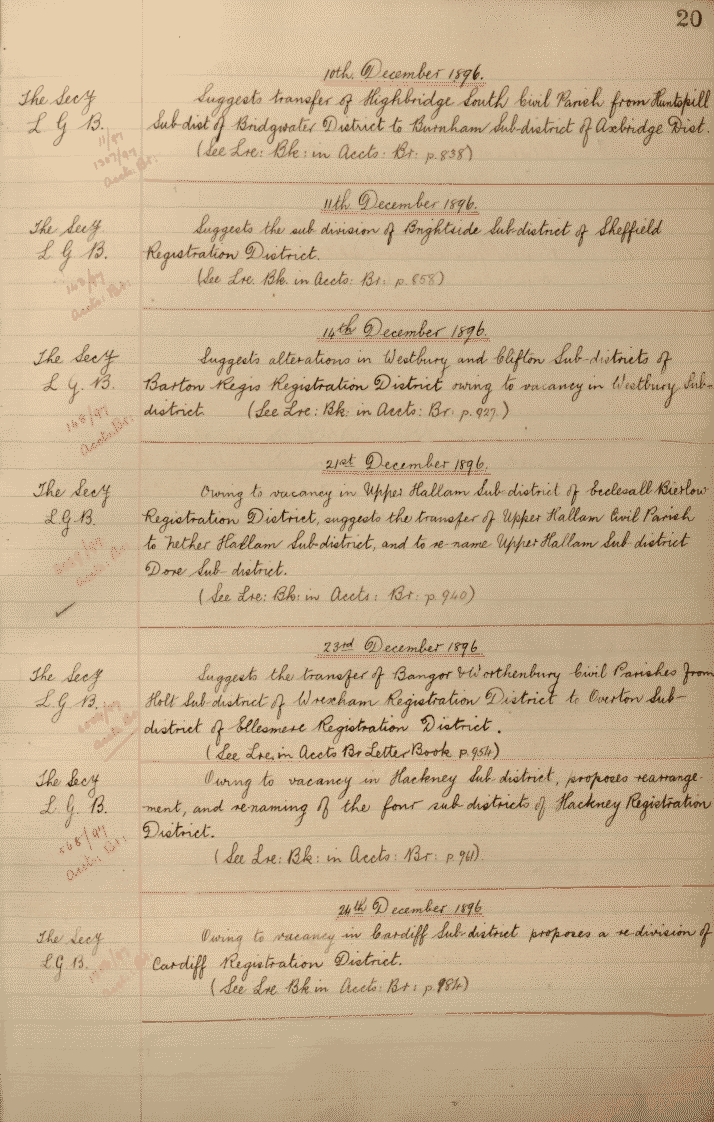 20
10th. December 1896.
The Secy
L G B.
11/97
1307/97
Accts: Br:
Suggests transfer of Highbridge South Civil Parish from Huntspill
Sub-dist of Bridgwater District to Burnham Sub-district of Axbridge Dist.
(See Lre: Bk: in Accts: Br: p.838)
11th. December 1896.
The Secy
L G B.
Accts: Br:
Suggests the sub division of Brightside Sub-district of Sheffield
Registration District.
(See Lre. Bk. in Accts: Br: p.858)
14th December 1896.
The Secy
L. G. B.
148/97
Accts: Br:
Suggests alterations in Westbury and Clifton Sub-districts of
Barton Regis Registration District owing to vacancy in Westbury Sub-
district. (See Lre: Bk: in Accts: Br: p.927.)
21st December 1896.
The Secy
L.G.B.
Accts: Br:
Owing to vacancy in Upper Hallam Sub-district of Ecclesall Bierlow
Registration District, suggests the transfer of Upper Hallam Civil Parish
to Nether Hallam Sub-district, and to re-name Upper Hallam Sub-district
Dore Sub-district.
(See Lre: Bk: in Accts: Br: p.940)
23rd December 1896
The Secy
L.G.B.
Accts: Br:
Suggests the transfer of Bangor & Worthenbury Civil Parishes from
Holt Sub-district of Wrexham Registration District to Overton Sub-
district of Ellesmere Registration District.
(See Lre, in Accts Br Letter Book p.954)
The Secy
L. G. B.
568/97
Accts: Br:
Owing to vacancy in Hackney Sub-district, proposes rearrange-
ment, and re-naming of the four sub-districts of Hackney Registration
District.
(See Lre: Bk: in Accts: Br: p.961).
24th December 1896
The Secy
L.G B.
Owing to vacancy in Cardiff Sub-district proposes a re-division of
Cardiff Registration District.
(See Lre Bk in Accts: Br: p.984)